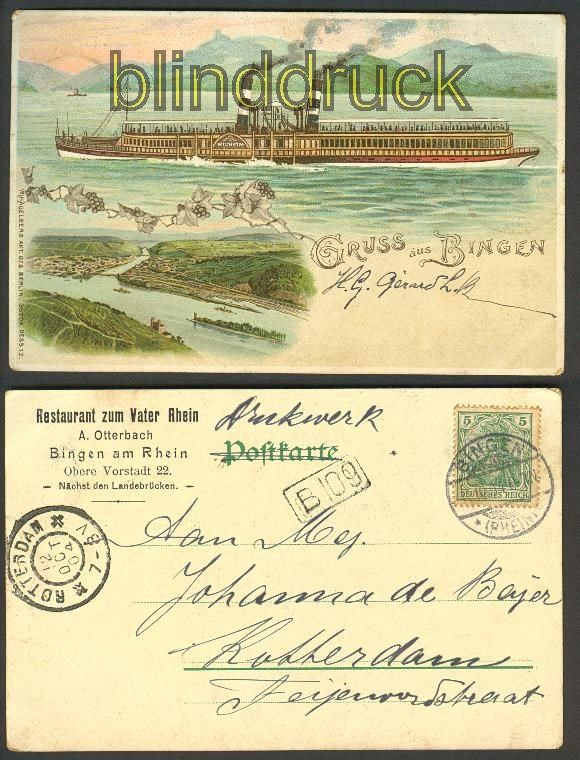 blinddruck
WILHELM
W. HAGELBERG AKT. GES. BERLIN.
DESS. 12.
GRUSS aus BINGEN
H. G. Gérard
Restaurant zum Vater Rhein
A. Otterbach
Bingen am Rhein
Obere Vorstadt 22.
– Nächst den Landebrücken. –
Drukwerk
Postkarte
B 109
5 5
DEUTSCHES REICH
BINGEN
* (RHEIN)
ROTTERDAM
7-8 V
12
OCT
04
Aan Mej.
Johanna de Beijer
Rotterdam
Feijenoordstraat